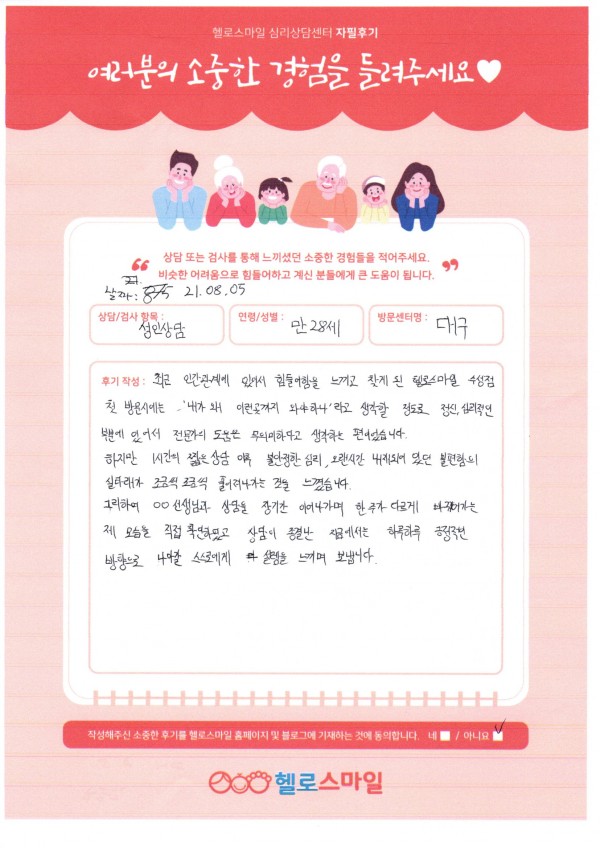 헬로스마일 심리상담센터 자필후기
여러분의 소중한 경험을 들려주세요♥
상담 또는 검사를 통해 느끼셨던 소중한 경험들을 적어주세요.
비슷한 어려움으로 힘들어하고 계신 분들에게 큰 도움이 됩니다.
날짜: 21.08.05
상담/검사 항목 : 성인상담
연령/성별 : 만 28세
방문센터명 : 대구
후기 작성 : 최근 인간관계에 있어서 힘들어함을 느끼고 찾게 된 헬로스마일 수성점
첫 방문시에는 '내가 왜 이런곳까지 와야하나'라고 생각할 정도로 정신, 심리적인
부분에 있어서 전문가의 도움은 무의미하다고 생각하는 편이었습니다.
하지만 1시간의 짧은 상담 이후 불안정한 심리, 오랜시간 내재되어 있던 불편함의
실타래가 조금씩 조금씩 풀어져나가는 것을 느꼈습니다.
그리하여 ○○ 선생님과 상담을 장기간 이어나가며 한 주가 다르게 바뀌어가는
제 모습을 직접 확인하였고 상담이 종결난 지금에서는 하루하루 긍정적인
방향으로 나아갈 스스로에게 설렘을 느끼며 보냅니다.
작성해주신 소중한 후기를 헬로스마일 홈페이지 및 블로그에 기재하는 것에 동의합니다. 네 / 아니요 ✓
헬로스마일